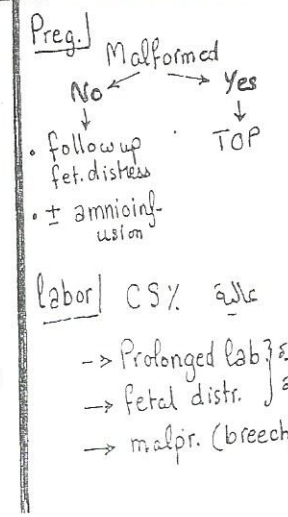 Preg.
Malformed
No Yes
• follow up
fet. distress
TOP
• ± amnioinf-
usion
labor CS% عالية
-> Prolonged lab.
-> fetal distr.
-> malpr. (breech